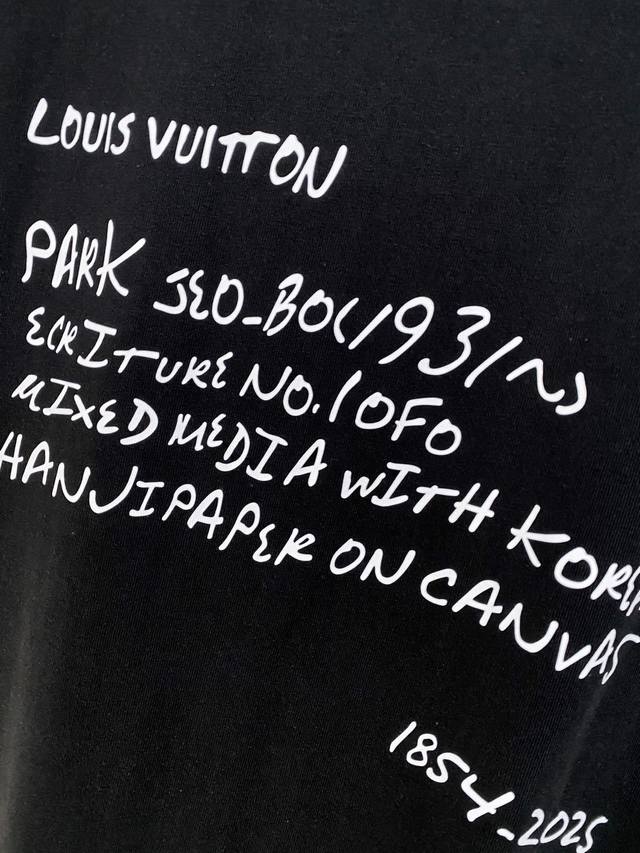 LOUIS VUITTON
PARK SEO_BO(1931~)
ECRITURE NO.10F0
MIXED MEDIA WITH KOREA
HANJI PAPER ON CANVAS
1854_2025